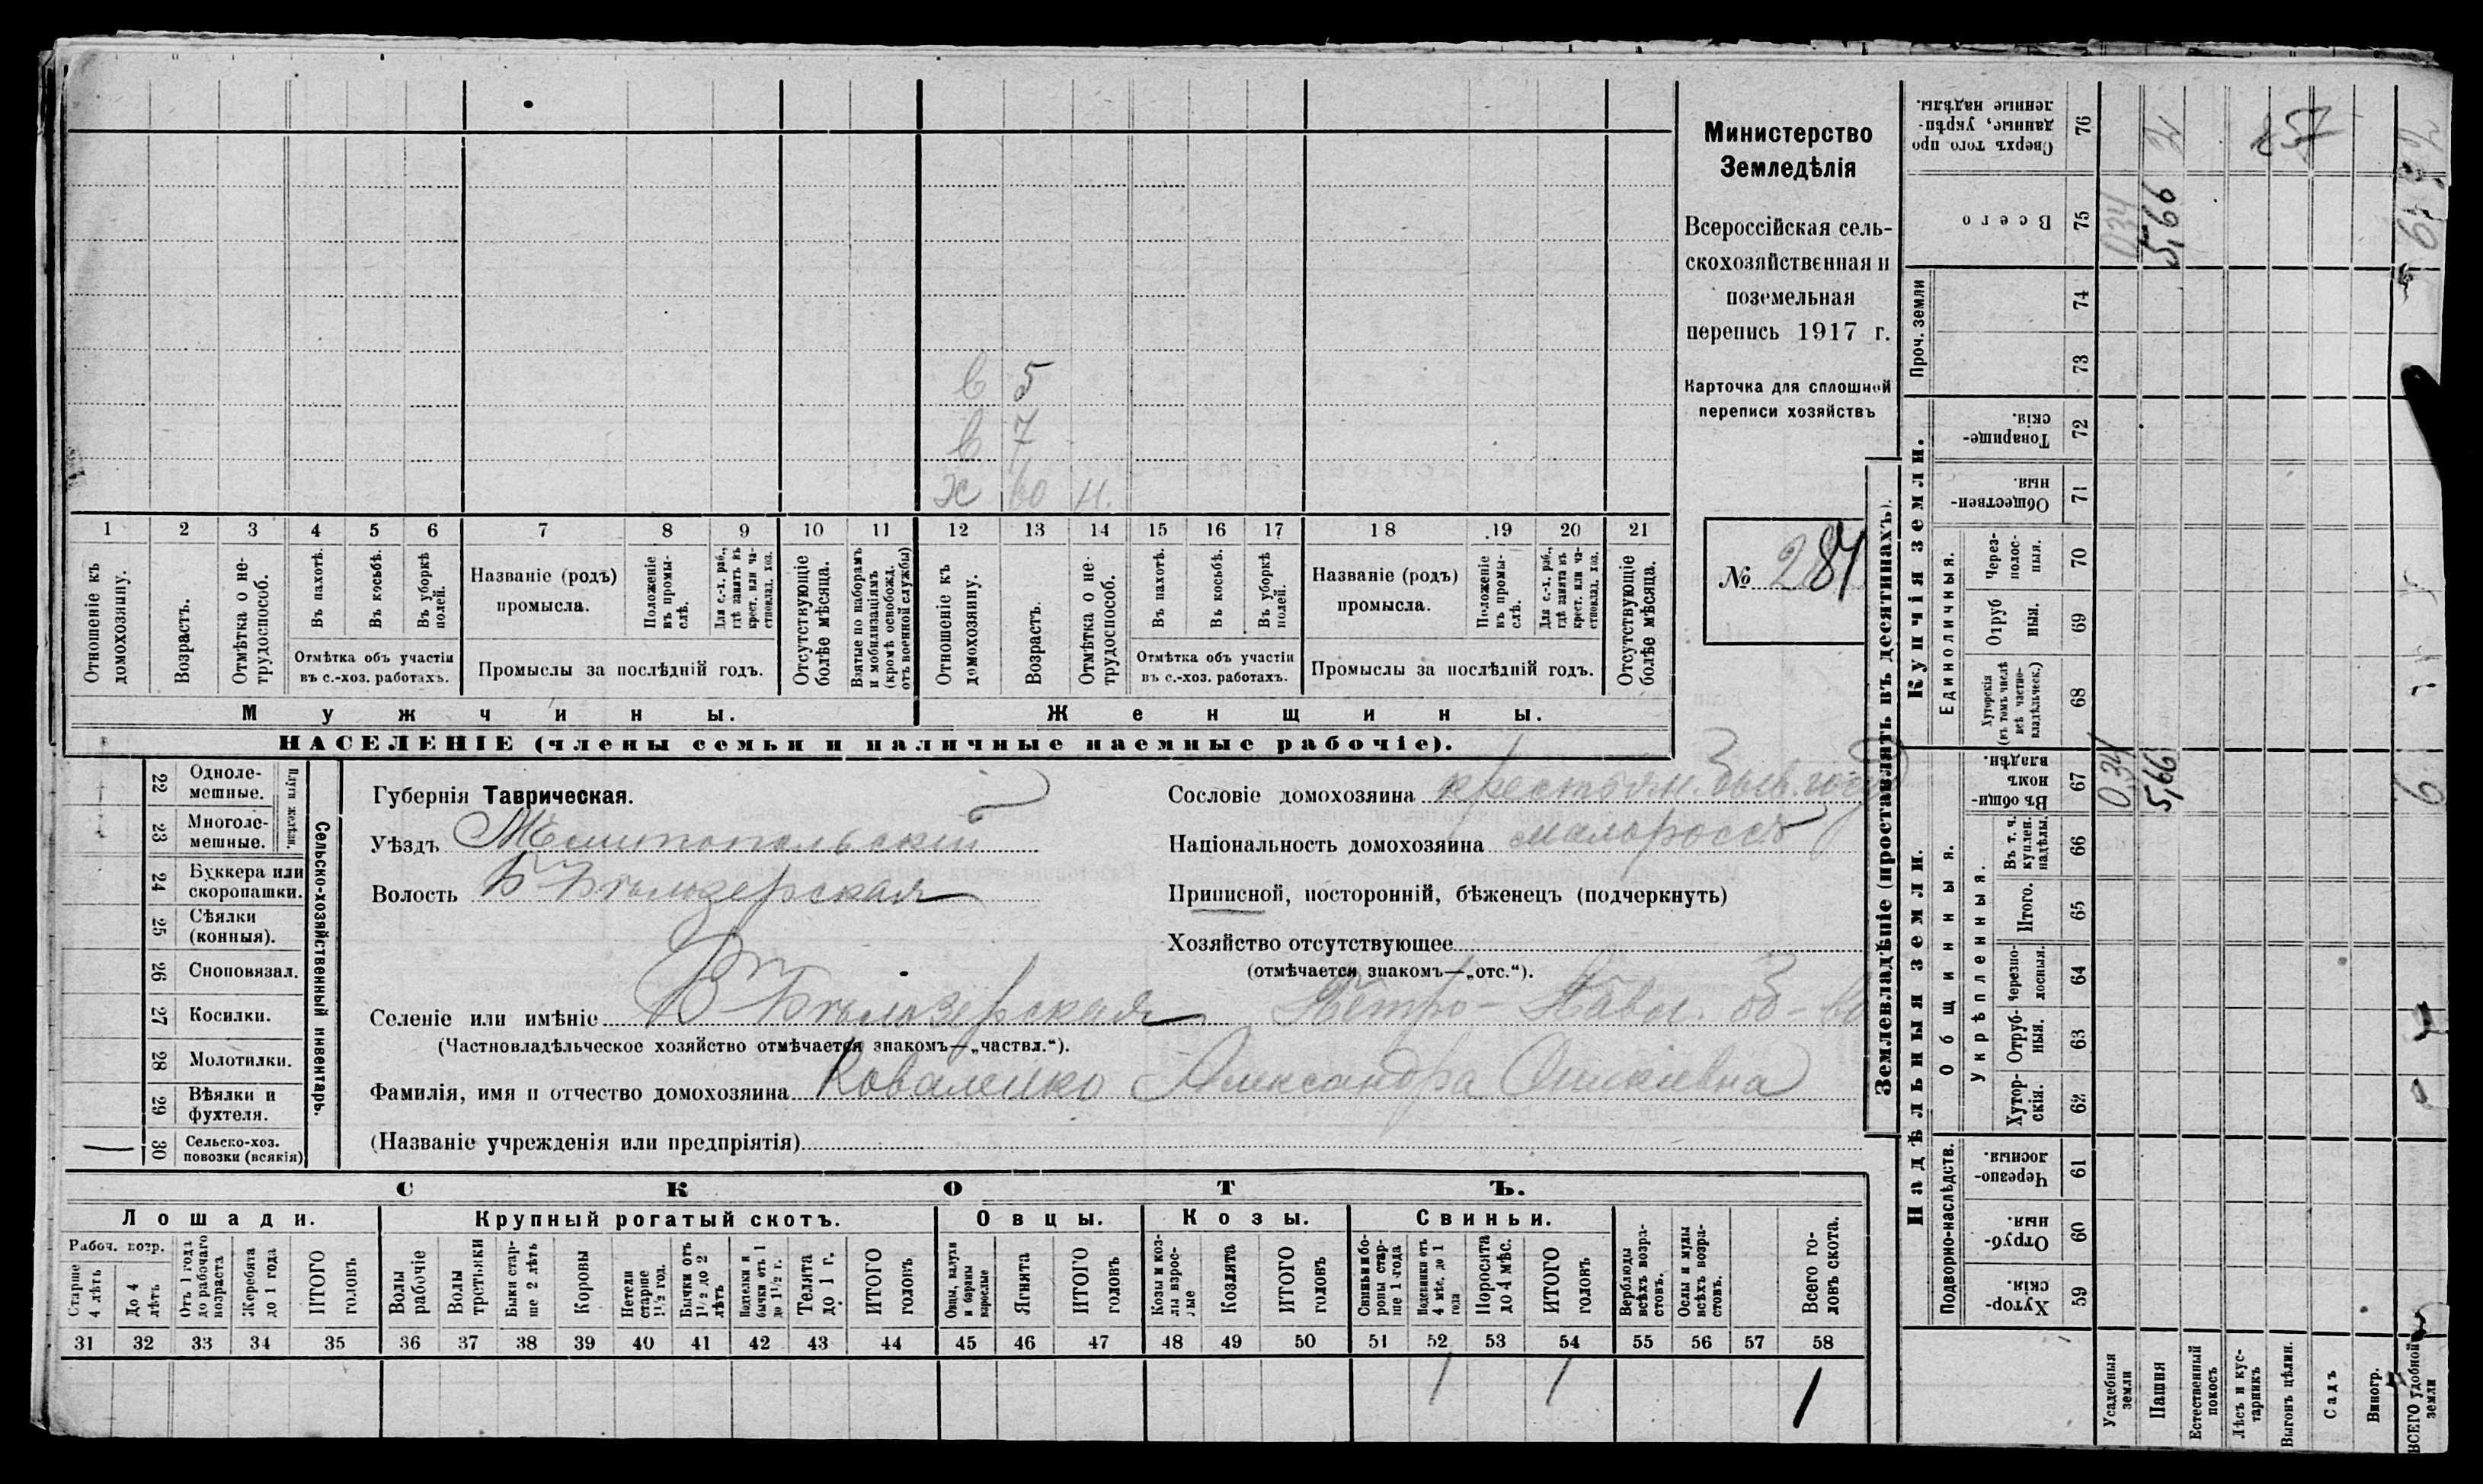 Министерство
Земледѣлія
Всероссійская сель-
скохозяйственная и
поземельная
перепись 1917 г.
Карточка для сплошной
переписи хозяйствъ
№ 284
в 5
в 7
ж 60 н.
1 2 3 4 5 6 7 8 9 10 11 12 13 14 15 16 17 18 19 20 21
Отношеніе къ домохозяину.
Возрастъ.
Отмѣтка о не-трудоспособ.
Въ пахотѣ.
Въ косьбѣ.
Въ уборкѣ полей.
Отмѣтка объ участіи
въ с.-хоз. работахъ.
Названіе (родъ)
промысла.
Положеніе въ промы-слѣ.
Для с.-х. раб., гдѣ занятъ въ крест. или ча-стновлад. хоз.
Промыслы за послѣдній годъ.
Отсутствующіе болѣе мѣсяца.
Взятые по наборамъ и мобилизаціямъ (кромѣ освобожд. отъ военной службы)
Отношеніе къ домохозяину.
Возрастъ.
Отмѣтка о не-трудоспособ.
Въ пахотѣ.
Въ косьбѣ.
Въ уборкѣ полей.
Отмѣтка объ участіи
въ с.-хоз. работахъ.
Названіе (родъ)
промысла.
Положеніе въ промы-слѣ.
Для с.-х. раб., гдѣ занятъ въ крест. или ча-стновлад. хоз.
Промыслы за послѣдній годъ.
Отсутствующіе болѣе мѣсяца.
Мужчины.
Женщины.
НАСЕЛЕНІЕ (члены семьи и наличные наемные рабочіе).
22 Одноле-мешные.
23 Многоле-мешные.
Плуги желѣзн.
24 Буккера или скоропашки.
25 Сѣялки (конныя).
26 Сноповязал.
27 Косилки.
28 Молотилки.
29 Вѣялки и фухтеля.
30 Сельско-хоз. повозки (всякія)
Сельско-хозяйственный инвентарь.
Губернія Таврическая.
Уѣздъ Мелитопольскій
Волость Б Бѣлозерская
Сословіе домохозяина крестьян. быв. госуд
Національность домохозяина малороссъ
Приписной, посторонній, бѣженецъ (подчеркнуть)
Хозяйство отсутствующее
(отмѣчается знакомъ—„отс.“).
Селеніе или имѣніе Б Бѣлозерская Петро-Павл. об-во
(Частновладѣльческое хозяйство отмѣчается знакомъ—„частвл.“).
Фамилія, имя и отчество домохозяина Коваленко Александра
(Названіе учрежденія или предпріятія)
СКОТЪ.
Лошади. Крупный рогатый скотъ. Овцы. Козы. Свиньи.
Рабоч. возр.
Старше 4 лѣтъ
До 4 лѣтъ
Отъ 1 года до рабочаго возраста
Жеребята до 1 года
ИТОГО головъ
Волы рабочіе
Волы третьяки
Быки стар-ше 2 лѣтъ
Коровы
Нетели старше 1½ год.
Бычки отъ 1½ до 2 лѣтъ
Телки и бычки отъ 1 до 1½ г.
Телята до 1 г.
ИТОГО головъ
Овцы, валухи и бараны взрослые
Ягнята
ИТОГО головъ
Козы и коз-лы взрос-лые
Козлята
ИТОГО головъ
Свиньи и бо-ровы стар-ше 1 года
Подсвинки отъ 4 мѣс. до 1 года
Поросята до 4 мѣс.
ИТОГО головъ
Верблюды всѣхъ возра-стовъ.
Ослы и мулы всѣхъ возра-стовъ.
Всего го-ловъ скота.
31 32 33 34 35 36 37 38 39 40 41 42 43 44 45 46 47 48 49 50 51 52 53 54 55 56 57 58
1 1 1
Землевладѣніе (проставлять въ десятинахъ).
Надѣльныя земли.
Купчія земли.
Проч. земли
Подворно-наслѣдств.
Общинныя.
Укрѣпленныя.
Единоличныя.
Хутор-скія. 59
Отруб-ныя. 60
Черезпо-лосныя. 61
Хутор-скія. 62
Отруб-ныя. 63
Черезпо-лосныя. 64
Итого. 65
Въ т. ч. куплен. надѣлы. 66
Въ общи-номъ владѣн. 67
Хуторскія (въ томъ числѣ всѣ частно-владѣльческ.) 68
Отруб ныя. 69
Через-полос-ныя. 70
Обществен-ныя. 71
Товарище-скія. 72
73
74
Всего 75
Сверхъ того про данные, укрѣп-ленные надѣлы. 76
Усадебныя земли 0,34 0,34
Пашня 5,66 5,66
Естественный покосъ
Лѣсъ и кус-тарникъ
Выгонъ цѣлин.
Садъ
Виногр.
ВСЕГО удобной земли 6